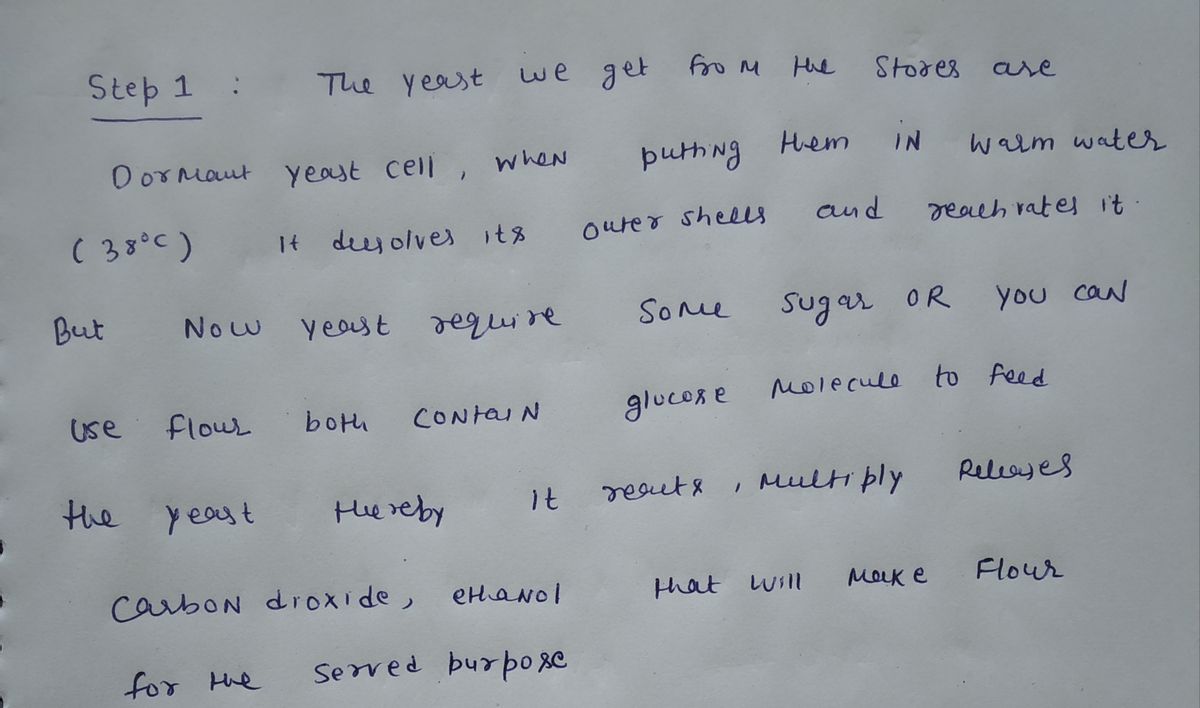 Step 1 : The yeast we get from the stores are
Dormant yeast cell, when putting them in warm water
(38°C) It dessolves its outer shells and reachvates it.
But Now yeast require some sugar OR you can
use flour both contain glucose molecule to feed
the yeast thereby it reacts, multiply Releases
carbon dioxide, ethanol that will make Flour
for the served purpose